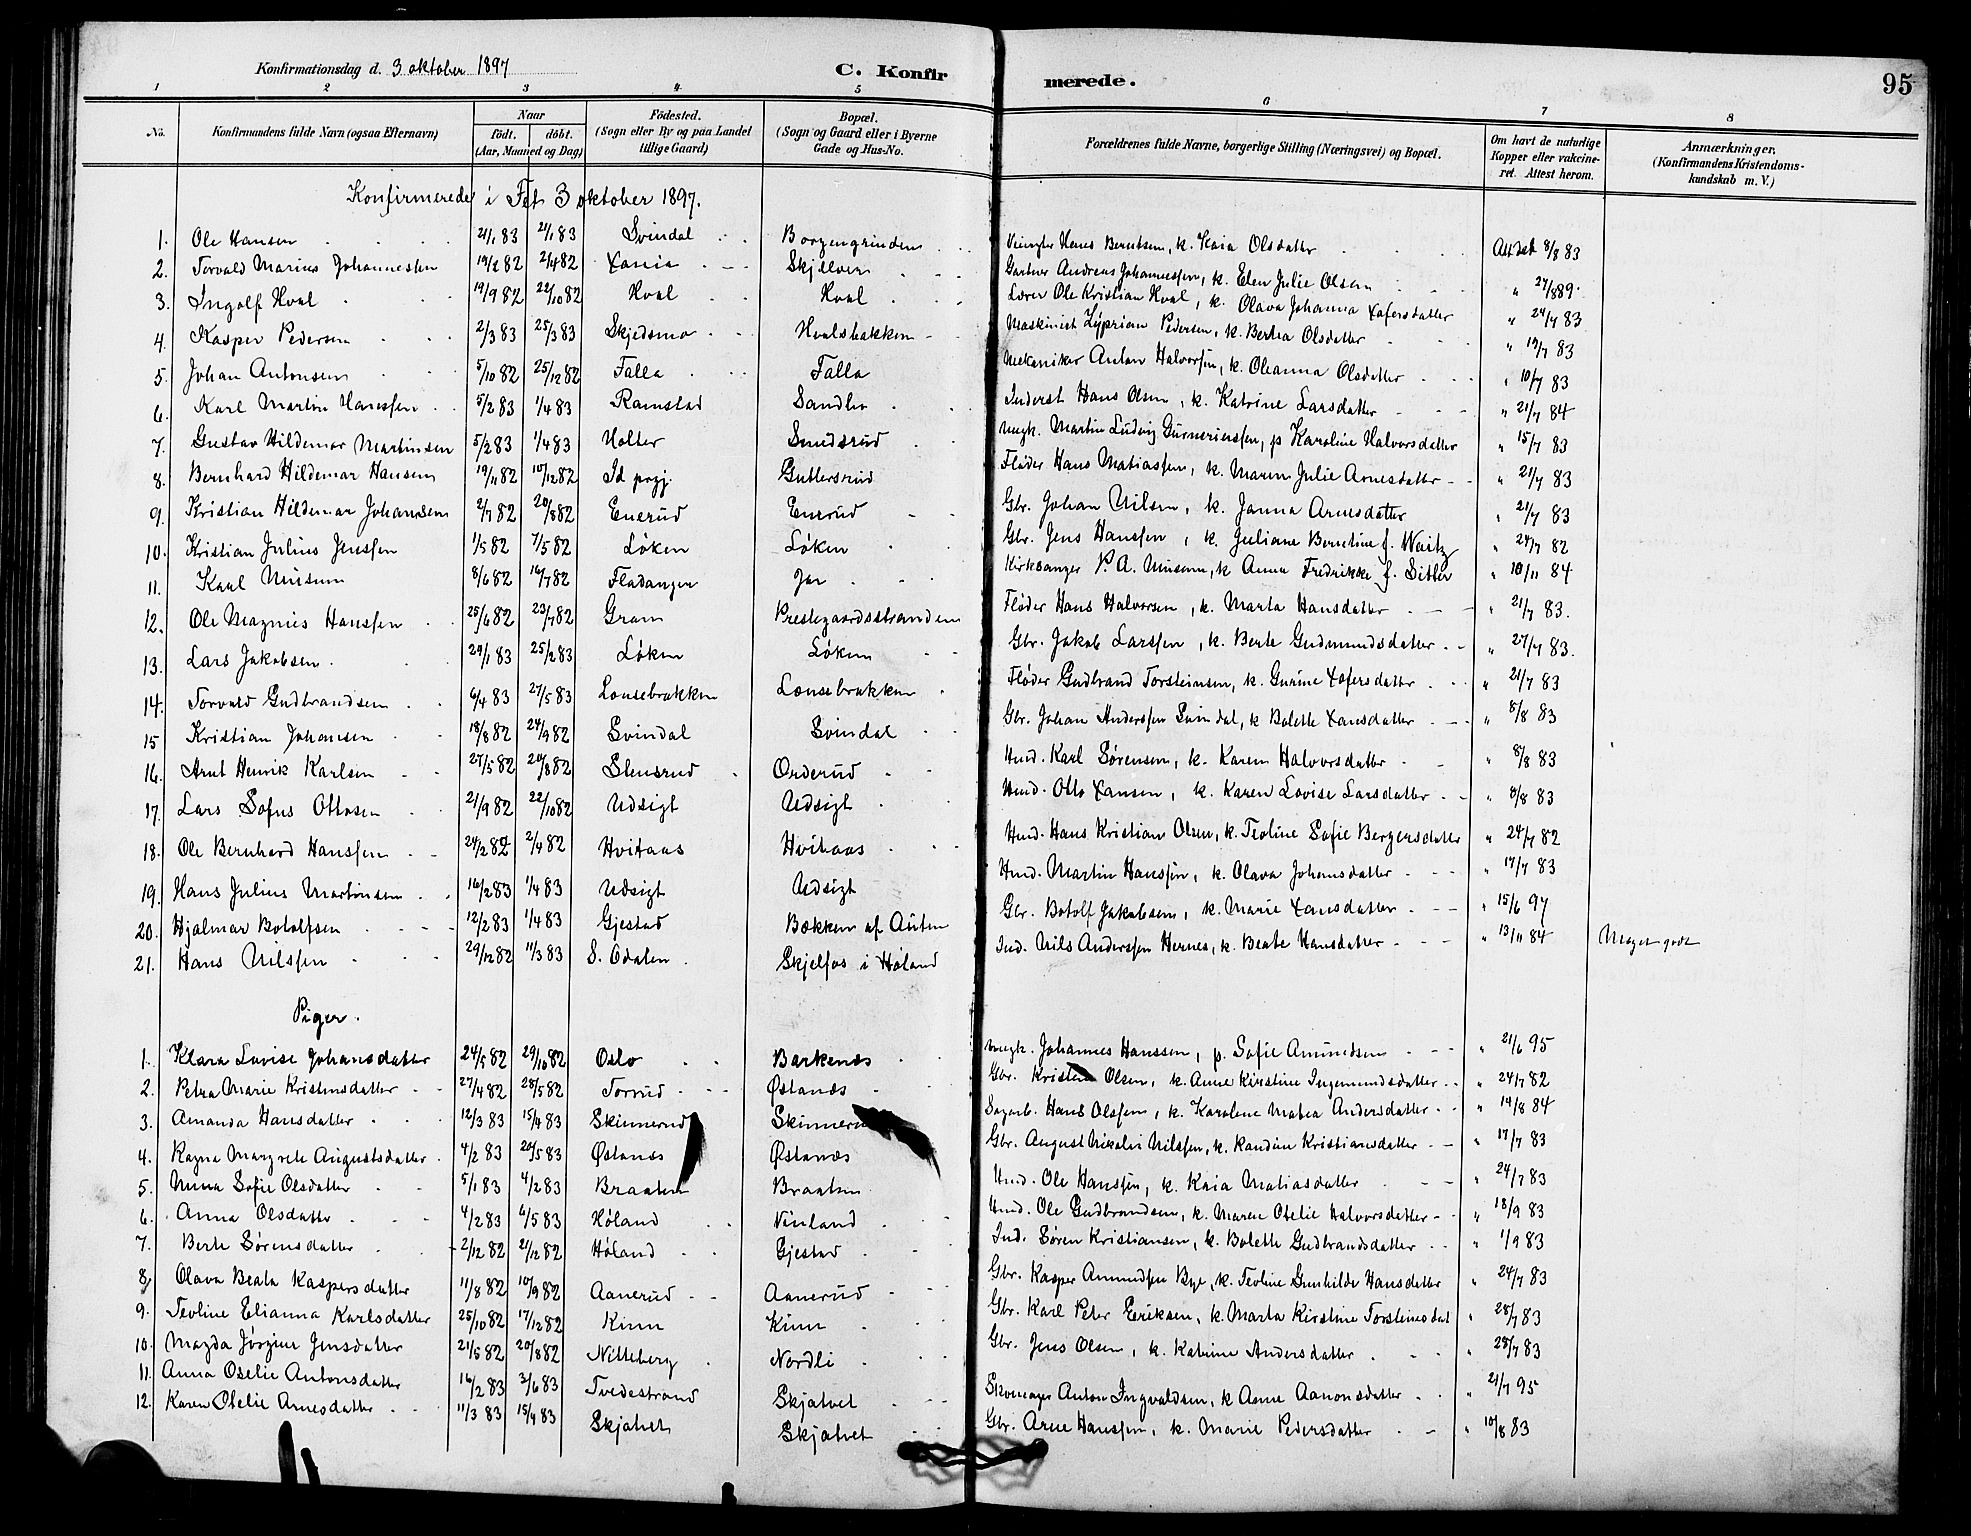 Konfirmationsdag d. 3 oktober 1897 C. Konfirmerede. 95
1 2 3 4 5 6 7 8
No. Konfirmandens fulde Navn (ogsaa Efternavn) Naar født. døbt. (Aar, Maaned og Dag) Fødested. (Sogn eller By og paa Landet tillige Gaard) Bopæl. (Sogn og Gaard eller i Byerne Gade og Hus-No. Forældrenes fulde Navne, borgerlige Stilling (Næringsvei) og Bopæl. Om havt de naturlige Kopper eller vakcineret. Attest herom. Anmærkninger. (Konfirmandens Kristendomskundskab m. V.)
Konfirmerede i Fet 3 oktober 1897.
1. Ole Hansen 21/1 83 21/1 83 Svindal Borgengrinden Hans Berntsen, k. Kaia Olsdatter Attest 8/8 83
2. Torvald Marius Johannessen 19/2 82 2/4 82 Xania Skjelver Gartner Andreas Johannessen, k. Elen Julie Olsen " 27/8 89.
3. Ingolf Hval 19/9 82 22/10 82 Hval Hval Lærer Ole Kristian Hval, k. Olava Johanna Xofersdatter " 24/7 83
4. Kasper Pedersen 2/3 83 25/3 83 Skjedsmo Hvalsbakken Maskinist Zyprian Pedersen, k. Berthea Olsdatter " 19/7 83
5. Johan Antonsen 5/10 82 25/12 82 Falla Falla Mekaniker Anton Halvorsen, k. Oleanna Olsdatter " 10/7 83
6. Karl Martin Hanssen 5/2 83 1/4 83 Ramstad Sandlin Inderst Hans Olsen, k. Katrine Larsdatter " 21/7 84
7. Gustav Hildemar Martinsen 5/2 83 1/4 83 Holter Smedsrud Ungk. Martin Ludvig Gurneriussen, p Karoline Halvorsdatter " 15/7 83
8. Bernhard Hildemar Hansen 19/11 82 10/12 82 Id prgj. Guttersrud Fløder Hans Matiassen, k. Maren Julie Arnesdatter " 21/7 83
9. Kristian Hildemar Johansen 2/7 82 20/8 82 Enerud Enerud Gbr. Johan Nilsen, k. Janna Arnesdatter " 21/7 83
10. Kristian Julius Jenssen 1/5 82 7/5 82 Løken Løken Gbr. Jens Hanssen, k. Juliane Berntine f. Waitz " 24/7 82
11. Karl Musum 8/6 82 16/7 82 Fladanger Jar Kirksanger P. A. Musum, k Anna Fredrikke f. Sitter " 10/11 84
12. Ole Magnus Hanssen 25/6 82 23/7 82 Gram Prestegaardsstranden Fløder Hans Halvorsen, k. Marta Hansdatter " 21/7 83.
13. Lars Jakobsen 29/1 83 25/2 83 Løken Løken Gbr. Jakob Larssen, k. Berte Gudmundsdatter " 27/7 83.
14. Torvald Gudbrandsen 6/4 83 27/5 83 Lonsebakken Lonsebakken Fløder Gudbrand Torsteinsen, k. Gurine Xofersdatter " 21/7 83
15 Kristian Johansen 18/8 82 24/9 82 Svindal Svindal Gbr. Johan Anderssen Svindal, k Bolette Xansdatter " 8/8 83
16. Arnt Henrik Karlsen 27/5 82 20/8 82 Stensrud Orderud Hmd. Karl Sørensen, k. Karen Halvorsdatter " 8/8 83
17. Lars Sofus Ottosen 21/9 82 22/10 82 Udsigt Udsigt Hmd. Otto Xansen, k. Karen Lovise Larsdatter " 8/8 83
18. Ole Bernhard Hanssen 24/2 82 2/4 82 Hvitaas Hvitaas Hmd. Hans Kristian Olsen, k. Teoline Sofie Bergersdatter " 24/7 82
19. Hans Julius Martinsen 16/2 83 1/4 83 Udsigt Udsigt Hmd. Martin Hanssen, k. Olava Johansdatter " 17/7 83
20. Hjalmar Botolfsen 12/2 83 1/4 83 Gjestad Bakken af Auten Gbr. Botolf Jakobsen, k. Marie Xansdatter " 15/6 97
21. Hans Nilssen 29/12 82 11/3 83 S. Odalen Skjelfos i Høland Ind. Nils Anderssen Hernes, k. Beate Hansdatter " 13/11 84 Meget godt
Piger.
1. Klara Lovise Johansdatter 24/5 82 29/10 82 Oslo Barkenes Ungk. Johannes Hanssen, p. Sofie Amundsen " 21/6 95
2. Petra Marie Kristensdatter 27/4 82 28/5 82 Torrud Østanes Gbr. Kristen Olsen, k. Anne Kirstine Ingemundsdatter " 24/7 82
3. Amanda Hansdatter 12/3 83 15/4 83 Skinnerud Skinnerud Sagarb. Hans Olssen, k. Karolene Matea Andersdatter " 14/8 84
4. Ragna Margrete Augustsdatter 4/2 83 20/5 83 Østanes Østanes Gbr. August Nikolai Nilssen, k. Randine Kristiansdatter " 17/7 83
5. Mina Sofie Olsdatter 5/1 83 4/2 83 Braaten Braaten Hmd. Ole Hanssen, k. Kaia Matiasdatter " 24/7 83
6. Anna Olsdatter 4/2 83 6/5 83 Høland Vinland Hmd. Ole Gudbrandsen, k. Maren Otelie Halvorsdatter " 18/9 83
7. Berte Sørensdatter 2/12 82 2/12 82 Høland Gjestad Ind. Søren Kristiansen, k. Bolette Gudbrandsdatter " 1/9 83
8. Olava Beata Kaspersdatter 11/8 82 10/9 82 Aanerud Aanerud Gbr. Kasper Amundsen Bye, k. Teoline Gunhilde Hansdatter " 24/7 83
9. Teoline Elianna Karlsdatter 25/10 82 17/12 82 Kinn Kinn Gbr. Karl Peter Eriksen, k. Marta Kirstine Torsteinsdat " 28/7 83
10. Magda Jørgine Jensdatter 21/5 82 20/8 82 Nitteberg Nordli Gbr. Jens Olsen, k. Katrine Andersdatter " 28/7 83
11. Anna Oselie Antonsdatter 16/2 83 3/6 83 Tvedestrand Skjatvet Skomager Anton Ingvaldsen, k Anne Aanonsdatter " 21/7 95
12. Karen Otelie Arnesdatter 11/3 83 15/4 83 Skjatvet Skjatvet Gbr. Arne Hanssen, k. Marie Pedersdatter " 10/8 83